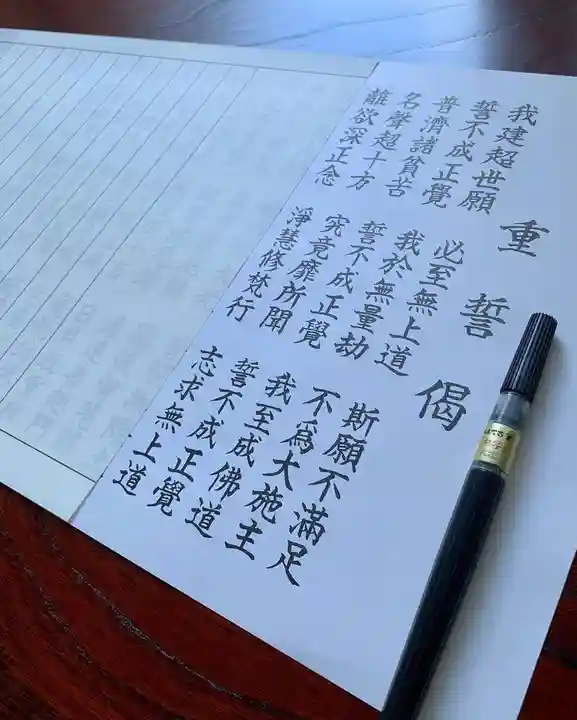 重誓偈
我建超世願 必至無上道 斯願不滿足
誓不成正覺 我於無量劫 不爲大施主
普濟諸貧苦 誓不成正覺 我至成佛道
名聲超十方 究竟靡所聞 誓不成正覺
離欲深正念 淨慧修梵行 志求無上道